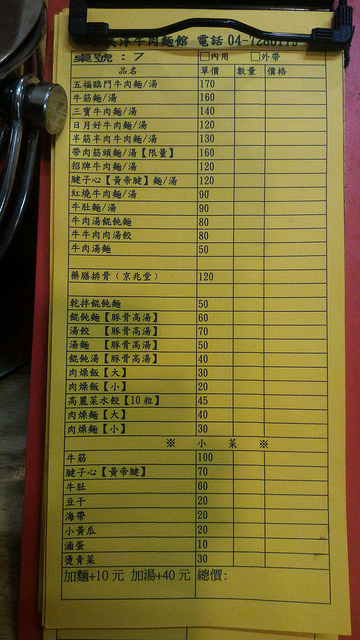 牛肉麵館 電話 04-
桌號：7 □內用 □外帶
品名 單價 數量 價格
五福臨門牛肉麵/湯 170
牛筋麵/湯 160
三寶牛肉麵/湯 140
日月好牛肉麵/湯 120
半筋半肉牛肉麵/湯 130
帶肉筋頭麵/湯【限量】 160
招牌牛肉麵/湯 120
腱子心【黃帝腱】麵/湯 120
紅燒牛肉麵/湯 90
牛肚麵/湯 90
牛肉湯餛飩麵 80
牛牛肉肉湯餃 80
牛肉湯麵 50
藥膳排骨（京兆堂） 120
乾拌餛飩麵 50
餛飩麵【豚骨高湯】 60
湯餃 【豚骨高湯】 70
湯麵 【豚骨高湯】 50
餛飩湯【豚骨高湯】 40
肉燥飯【大】 30
肉燥飯【小】 20
高麗菜水餃【10粒】 45
肉燥麵【大】 40
肉燥麵【小】 30
※ 小 菜 ※
牛筋 100
腱子心【黃帝腱】 70
牛肚 60
豆干 20
海帶 20
小黃瓜 20
滷蛋 10
燙青菜 30
加麵+10元 加湯+40元 總價: